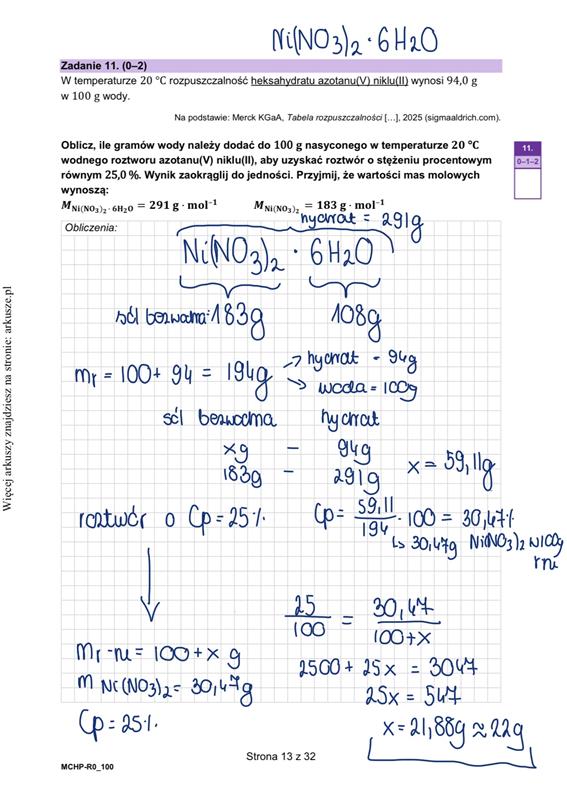 Ni(NO3)2 · 6H2O
Zadanie 11. (0–2)
W temperaturze 20 °C rozpuszczalność heksahydratu azotanu(V) niklu(II) wynosi 94,0 g
w 100 g wody.
Na podstawie: Merck KGaA, Tabela rozpuszczalności […], 2025 (sigmaaldrich.com).
Oblicz, ile gramów wody należy dodać do 100 g nasyconego w temperaturze 20 °C
wodnego roztworu azotanu(V) niklu(II), aby uzyskać roztwór o stężeniu procentowym
równym 25,0 %. Wynik zaokrąglij do jedności. Przyjmij, że wartości mas molowych
wynoszą:
11.
0–1–2
M Ni(NO3)2 · 6H2O = 291 g · mol⁻¹ M Ni(NO3)2 = 183 g · mol⁻¹
hydrat = 291g
Obliczenia:
Ni(NO3)2 · 6H2O
sól bezwodna: 183g 108g
mr = 100 + 94 = 194g → hydrat - 94g
↘ woda = 100g
sól bezwodna hydrat
xg – 94g
183g – 291g x = 59,11g
roztwór o Cp = 25% Cp = 59,11/194 · 100 = 30,47%
↳ 30,47g Ni(NO3)2 w 100g
rnu
25/100 = 30,47/100+x
mr-ru = 100 + x g 2500 + 25x = 3047
m Ni(NO3)2 = 30,47g 25x = 547
Cp = 25% x = 21,88g ≈ 22g
Strona 13 z 32
MCHP-R0_100
Więcej arkuszy znajdziesz na stronie: arkusze.pl